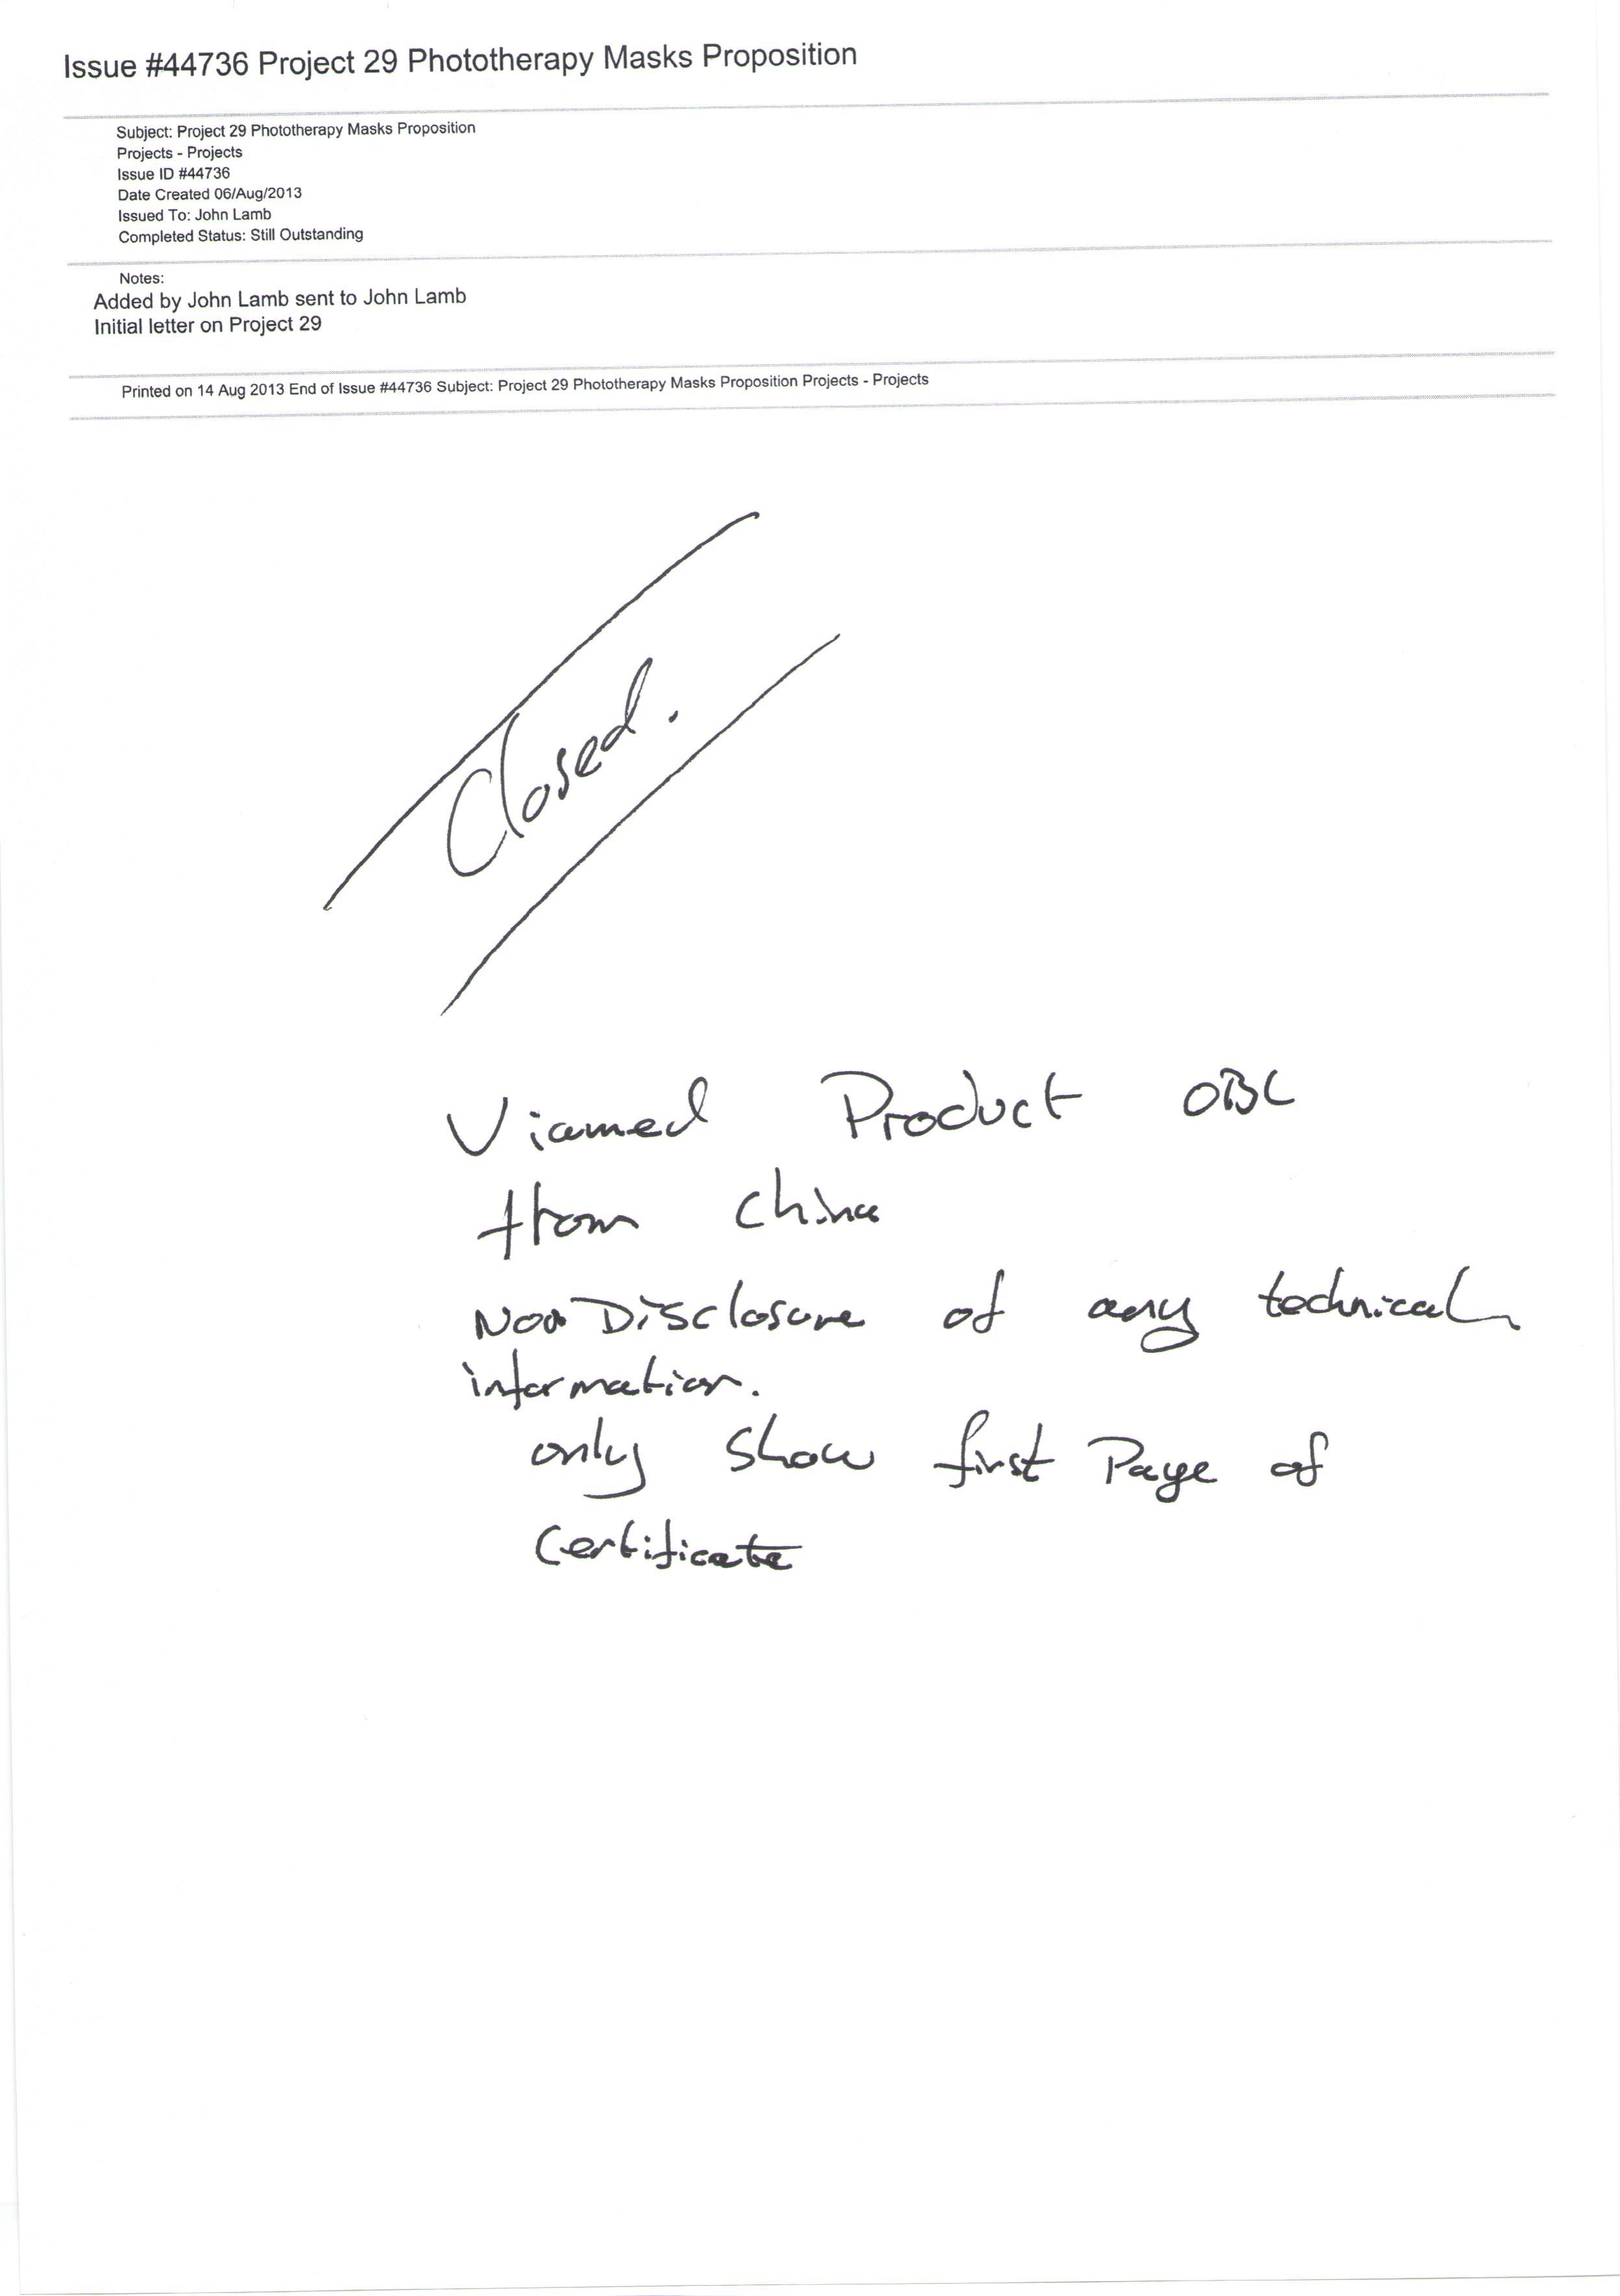 Issue #44736 Project 29 Phototherapy Masks Proposition
Subject: Project 29 Phototherapy Masks Proposition
Projects - Projects
Issue ID #44736
Date Created 06/Aug/2013
Issued To: John Lamb
Completed Status: Still Outstanding
Notes:
Added by John Lamb sent to John Lamb
Initial letter on Project 29
Printed on 14 Aug 2013 End of Issue #44736 Subject: Project 29 Phototherapy Masks Proposition Projects - Projects
Closed.
Viamed Product OBL
from China
Non Disclosure of any technical
information.
only show first Page of
Certificate